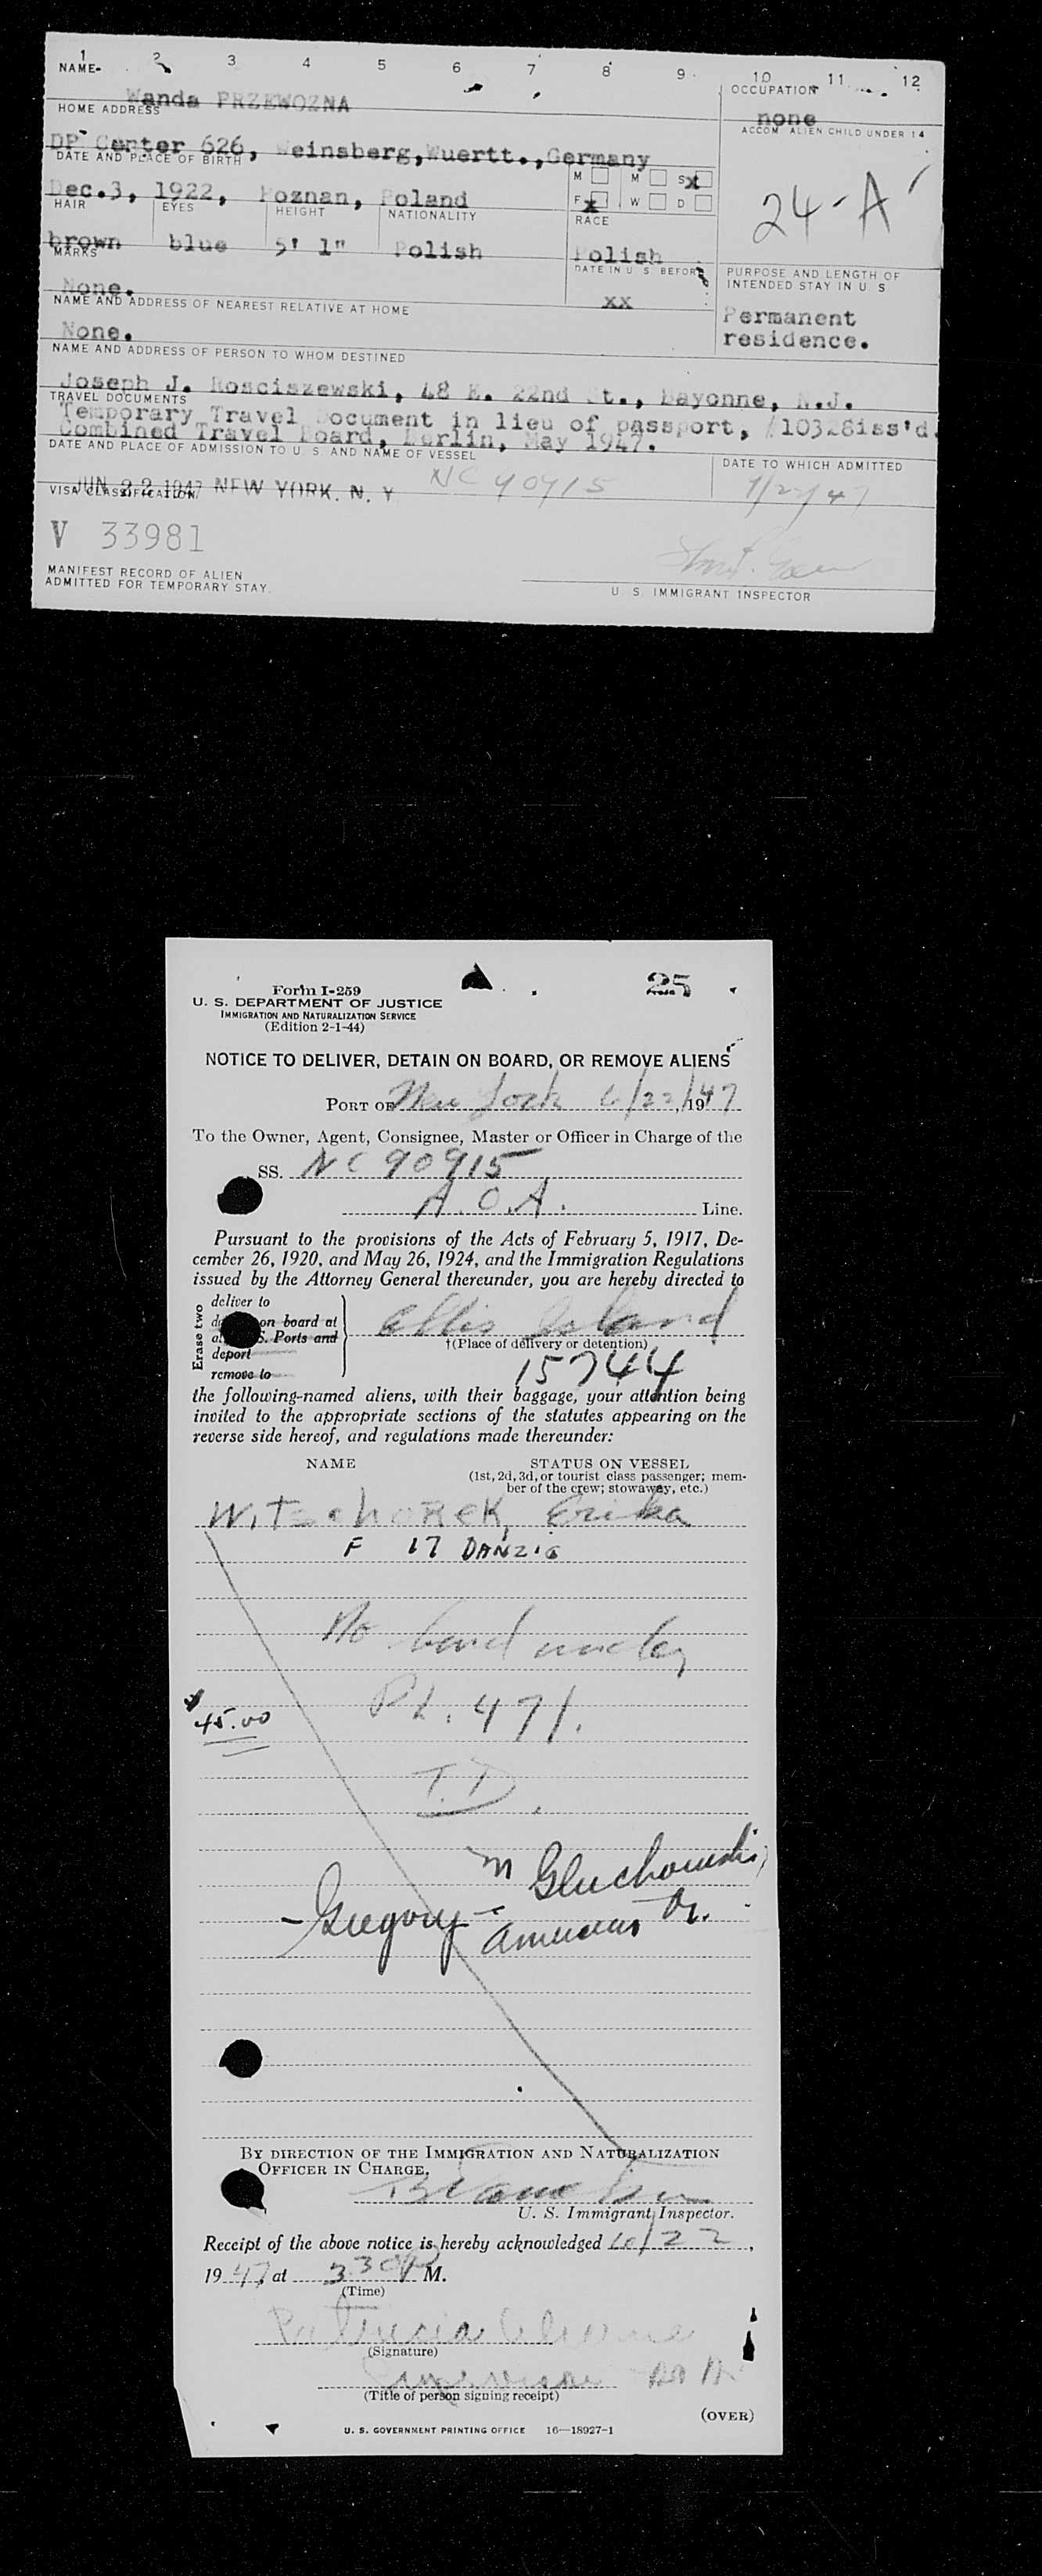 1 2 3 4 5 6 7 8 9 10 11 12
NAME- OCCUPATION
Wanda PRZEWOZNA none
HOME ADDRESS ACCOM. ALIEN CHILD UNDER 14
DP Center 626, Weinsberg, Wuertt., Germany
DATE AND PLACE OF BIRTH M M S X
Dec.3, 1922, Poznan, Poland F X W D 24-A
HAIR EYES HEIGHT NATIONALITY RACE
brown blue 5' 1" Polish Polish
MARKS DATE IN U. S. BEFORE PURPOSE AND LENGTH OF INTENDED STAY IN U. S.
None. xx
NAME AND ADDRESS OF NEAREST RELATIVE AT HOME Permanent
None. residence.
NAME AND ADDRESS OF PERSON TO WHOM DESTINED
Joseph J. Rosciszewski, 48 E. 22nd St., Bayonne, N.J.
TRAVEL DOCUMENTS
Temporary Travel Document in lieu of passport, iss'd.
Combined Travel Board, Berlin, May 1947.
DATE AND PLACE OF ADMISSION TO U. S. AND NAME OF VESSEL DATE TO WHICH ADMITTED
JUN 22 1947 NEW YORK, N. Y NC 90915
VISA CLASSIFICATION
V 33981
MANIFEST RECORD OF ALIEN
ADMITTED FOR TEMPORARY STAY.
U. S. IMMIGRANT INSPECTOR
Form I-259 25
U. S. DEPARTMENT OF JUSTICE
IMMIGRATION AND NATURALIZATION SERVICE
(Edition 2-1-44)
NOTICE TO DELIVER, DETAIN ON BOARD, OR REMOVE ALIENS
PORT OF New York 6/22, 1947
To the Owner, Agent, Consignee, Master or Officer in Charge of the
SS. NC 90915
A.O.A. Line.
Pursuant to the provisions of the Acts of February 5, 1917, De-
cember 26, 1920, and May 26, 1924, and the Immigration Regulations
issued by the Attorney General thereunder, you are hereby directed to
Erase two
deliver to
on board at Ellis Island
S. Ports and †(Place of delivery or detention)
deport
remove to 15744
the following-named aliens, with their baggage, your attention being
invited to the appropriate sections of the statutes appearing on the
reverse side hereof, and regulations made thereunder:
NAME STATUS ON VESSEL
(1st, 2d, 3d, or tourist class passenger; mem-
ber of the crew; stowaway, etc.)
Witzchorek, Erika
F 17 DANZIG
No
$45.00 471.
T.D.
M Gluchowski
-Gregory-
BY DIRECTION OF THE IMMIGRATION AND NATURALIZATION
OFFICER IN CHARGE.
U. S. Immigrant Inspector.
Receipt of the above notice is hereby acknowledged 6/22,
1947, at 3 30 P M.
(Time)
Patricia
(Signature)
(Title of person signing receipt)
(OVER)
U. S. GOVERNMENT PRINTING OFFICE 16—18927-1